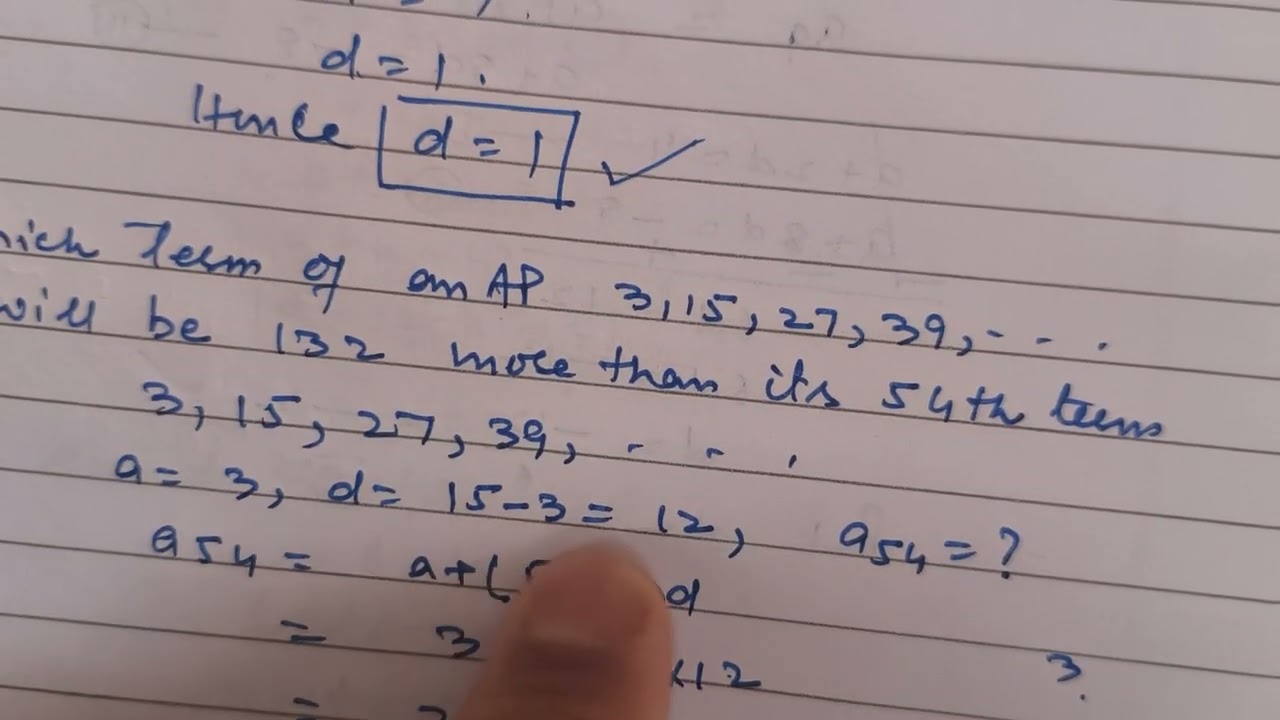 d = 1.
Hence d = 1 ✓
Term of an AP 3, 15, 27, 39, - - .
will be 132 more than its 54th term
3, 15, 27, 39, - - .
a = 3, d = 15-3 = 12, a54 = ?
a54 = a+( d
= 3 ×12 3.
=